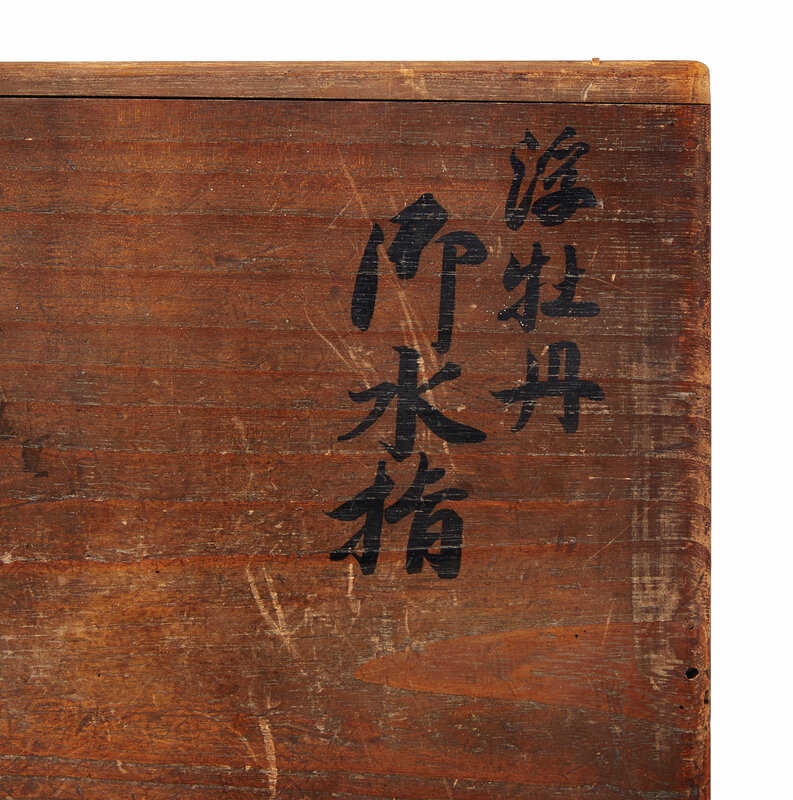 浮牡丹
御水指